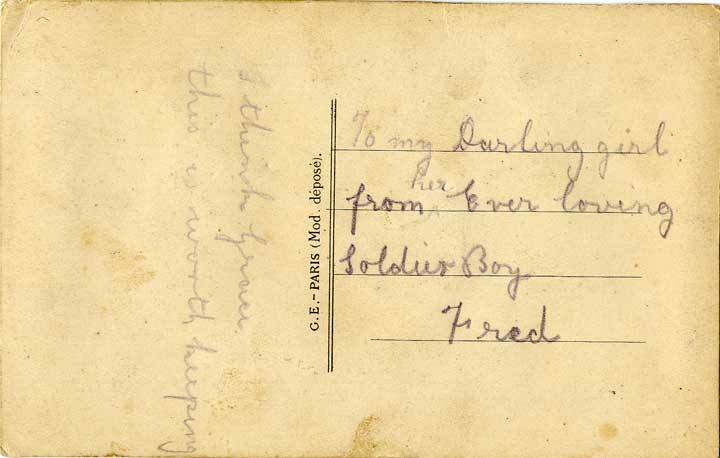 I think Grace,
this is worth keeping
G.E.- PARIS (Mod. déposé).
To my Darling girl
from her Ever loving
Soldier Boy
Fred